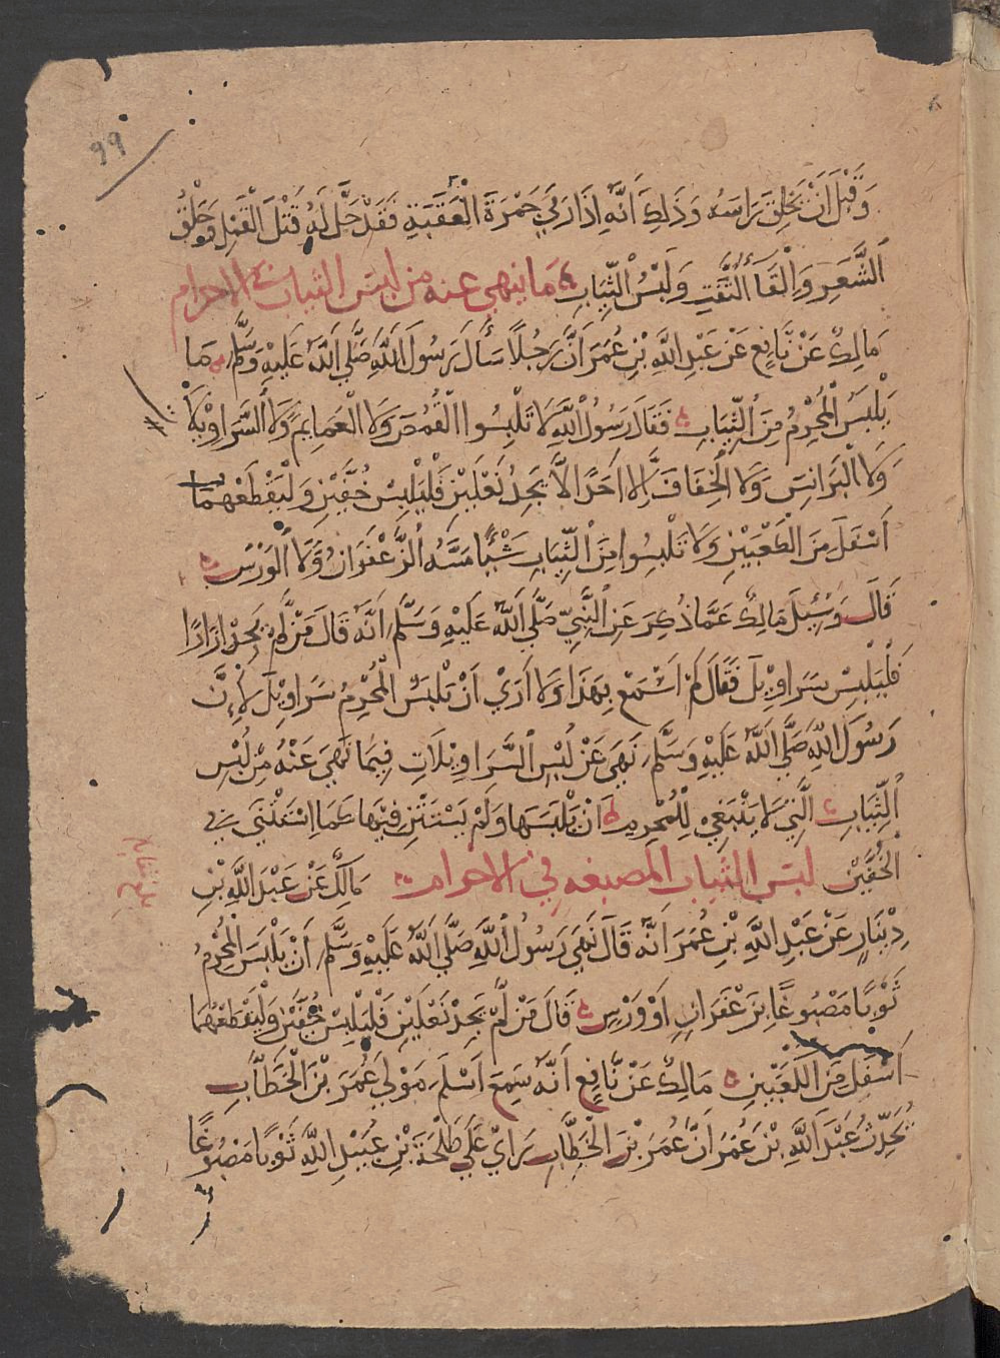 99
وَقَبْلَ اَنْ يَحْلِقَ رَاسَهُ وَذَلِكَ اَنَّهُ اِذَا رَمَي جَمْرَةَ الْعَقَبَةِ فَقَدْ حَلَّ لَهُ قَتْلُ الْقَمْلِ وَحَلْقُ
الشَّعَرِ وَاِلْقَاُ التَّفَثِ وَلُبْسُ الثِّيَابِ ما ينهي عنه من لبس الثياب في الاحرام
مَالِكٌ عَنْ نَّافِعٍ عَنْ عَبْدِ اللَّهِ بْنِ عُمَرَ اَنَّ رَجُلًا سَأَلَ رَسُولَ اللَّهِ صَلَّي اللَّهُ عَلَيْهِ وَسَلَّمَ مَا
يَلْبَسُ الْمُحْرِمُ مِنَ الثِّيَابِ فَقَالَ رَسُولُ اللَّهِ لَا تَلْبِسُوا الْقُمُصَ وَلَا الْعَمَايِمَ وَلَا السَّرَاوِيْلَاتِ
وَلَا الْبَرَانِسَ وَلَا الْخِفَافَ اِلَّا اَحَدًا لَّا يَجِدُ نَعْلَيْنِ فَلْيَلْبِسْ خُفَّيْنِ وَلْيَقْطَعْهُمَا
اَسْفَلَ مِنَ الْكَعْبَيْنِ وَلَا تَلْبِسُوا مِنَ الثِّيَابِ شَيْئًا مَسَّهُ الزَّعْفَرَانُ وَلَا الْوَرْسُ
قَالَ وَسُئِلَ مَالِكٌ عَمَّا ذُكِرَ عَنِ النَّبِيِّ صَلَّي اللَّهُ عَلَيْهِ وَسَلَّمَ اَنَّهُ قَالَ مَنْ لَّمْ يَجِدْ اِزَارًا
فَلْيَلْبِسْ سَرَاوِيْلَ فَقَالَ لَمْ اَسْمَعْ بِهَذَا وَلَا اَرَيْ اَنْ يَلْبَسَ الْمُحْرِمُ سَرَاوِيْلَ لِاَنَّ
رَسُولَ اللَّهِ صَلَّي اللَّهُ عَلَيْهِ وَسَلَّمَ نَهَي عَنْ لُبْسِ السَّرَاوِيْلَاتِ فِيمَا نَهَي عَنْهُ مِنْ لُبْسِ
الثِّيَابِ الَّتِي لَا يَنْبَغِي لِلْمُحْرِمِ اَنْ يَلْبَسَهَا وَلَمْ يَسْتَثْنِ فِيْهَا كَمَا اسْتَثْنَي فِي
الْخُفَّيْنِ لبس الثياب المصبغه في الاحرام مَالِكٌ عَنْ عَبْدِ اللَّهِ بْنِ
دِيْنَارٍ عَنْ عَبْدِ اللَّهِ بْنِ عُمَرَ اَنَّهُ قَالَ نَهَي رَسُولُ اللَّهِ صَلَّي اللَّهُ عَلَيْهِ وَسَلَّمَ اَنْ يَلْبَسَ الْمُحْرِمُ
ثَوْبًا مَصْبُوغًا بِزَعْفَرَانٍ اَوْ وَرْسٍ قَالَ مَنْ لَّمْ يَجِدْ نَعْلَيْنِ فَلْيَلْبِسْ خُفَّيْنِ وَلْيَقْطَعْهُمَا
اَسْفَلَ مِنَ الْكَعْبَيْنِ مَالِكٌ عَنْ نَّافِعٍ اَنَّهُ سَمِعَ اَسْلَمَ مَوْلَي عُمَرَ بْنِ الْخَطَّابِ
يُحَدِّثُ عَبْدَ اللَّهِ بْنَ عُمَرَ اَنَّ عُمَرَ بْنَ الْخَطَّابِ رَايَ عَلَي طَلْحَةَ بْنِ عُبَيْدِ اللَّهِ ثَوْبًا مَصْبُوغًا